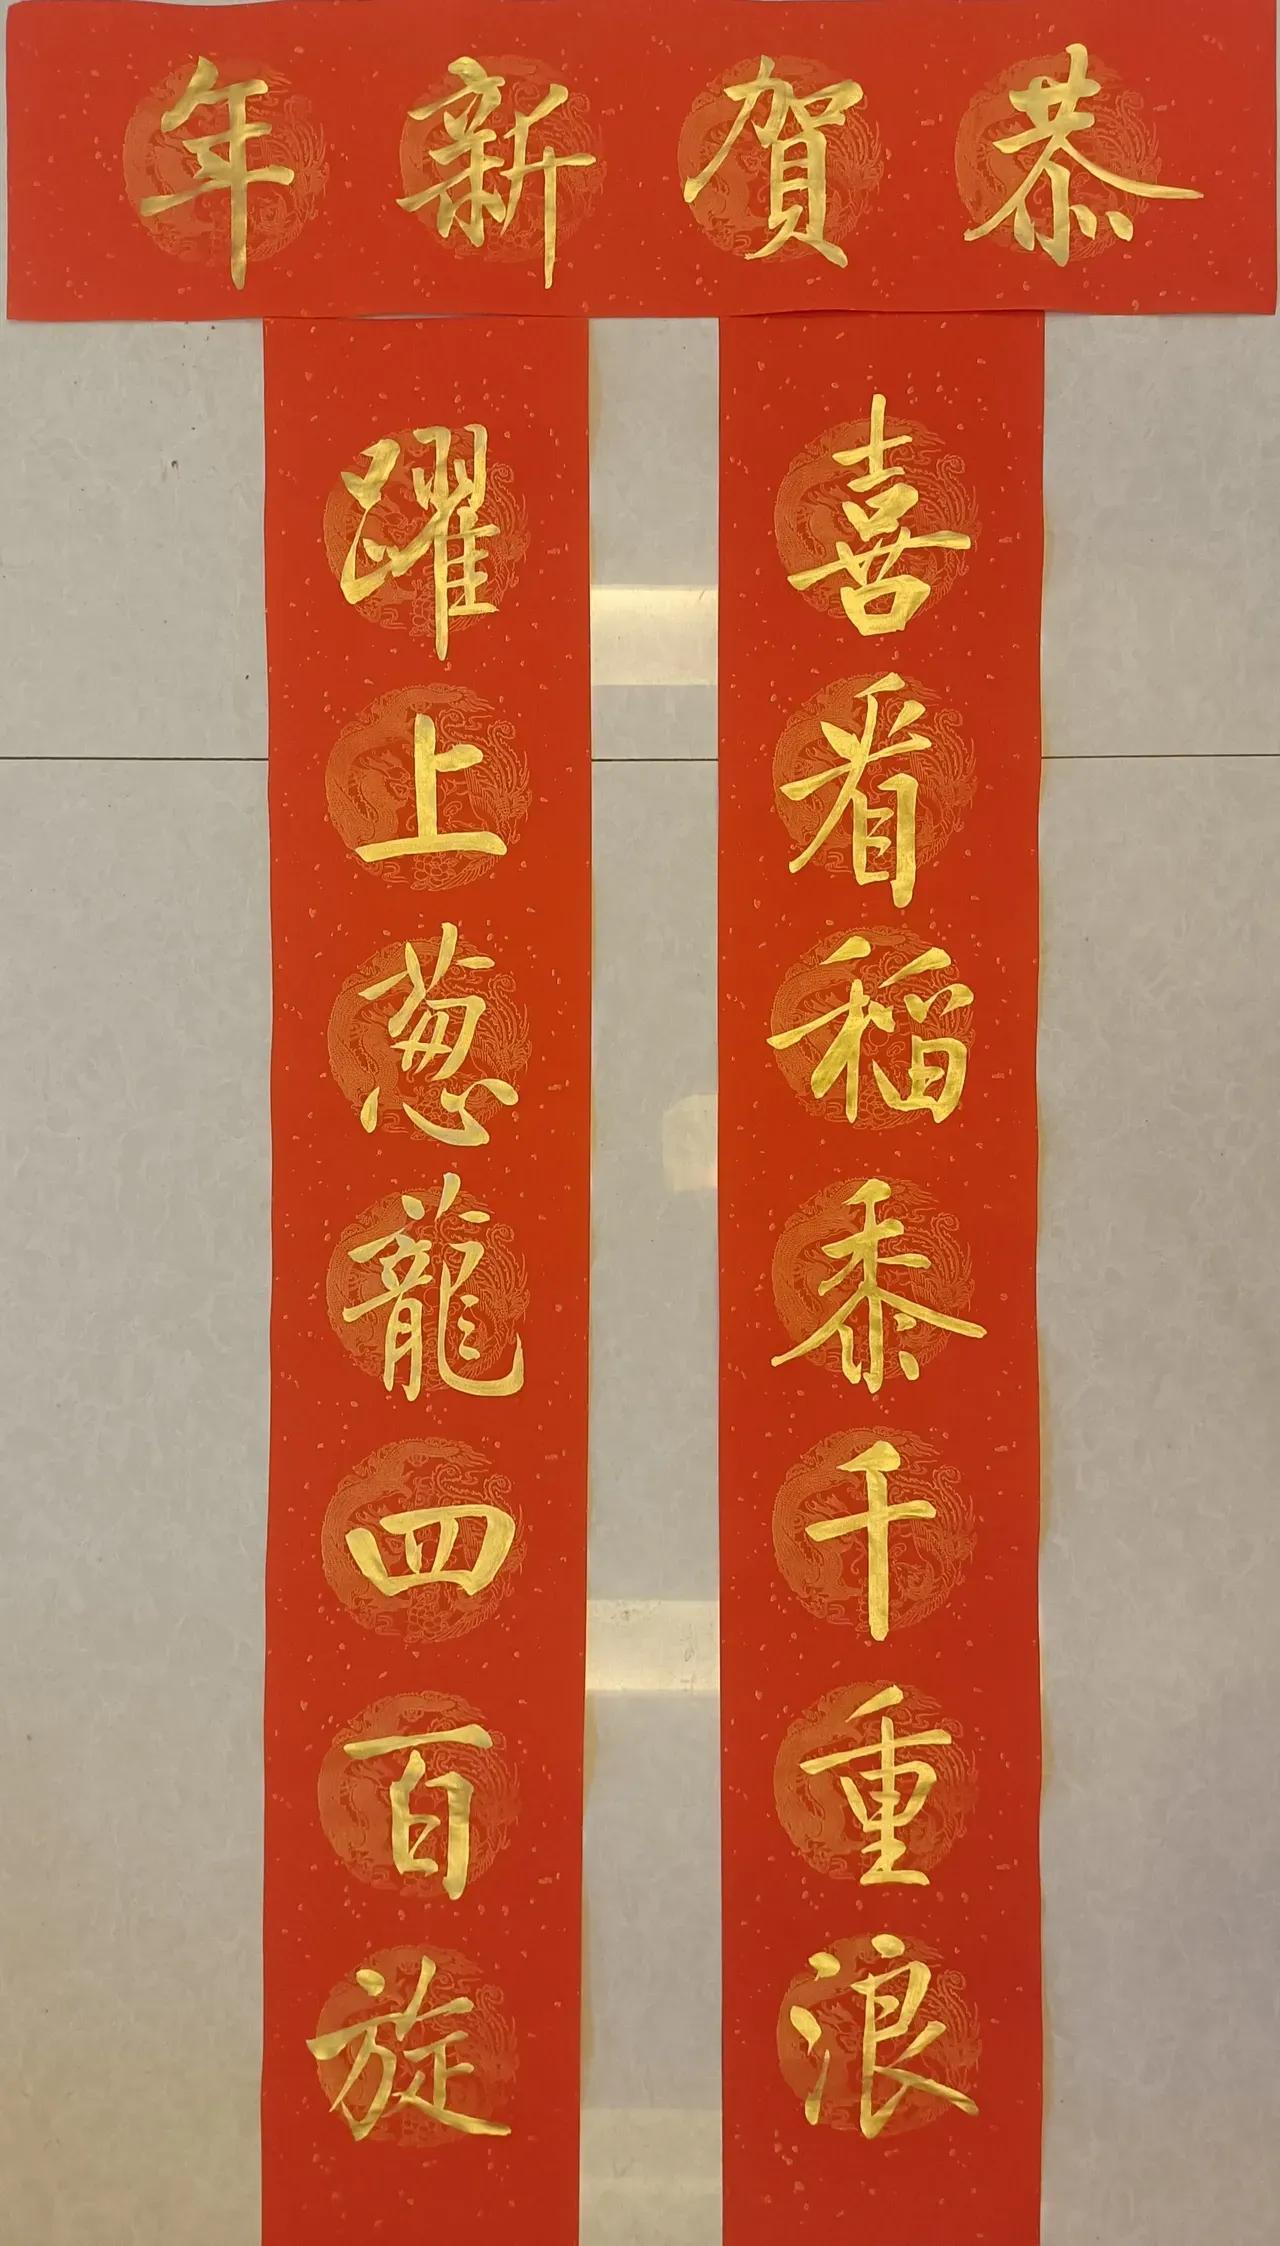 恭賀新年
喜看稻黍千重浪
躍上葱蘢四百旋